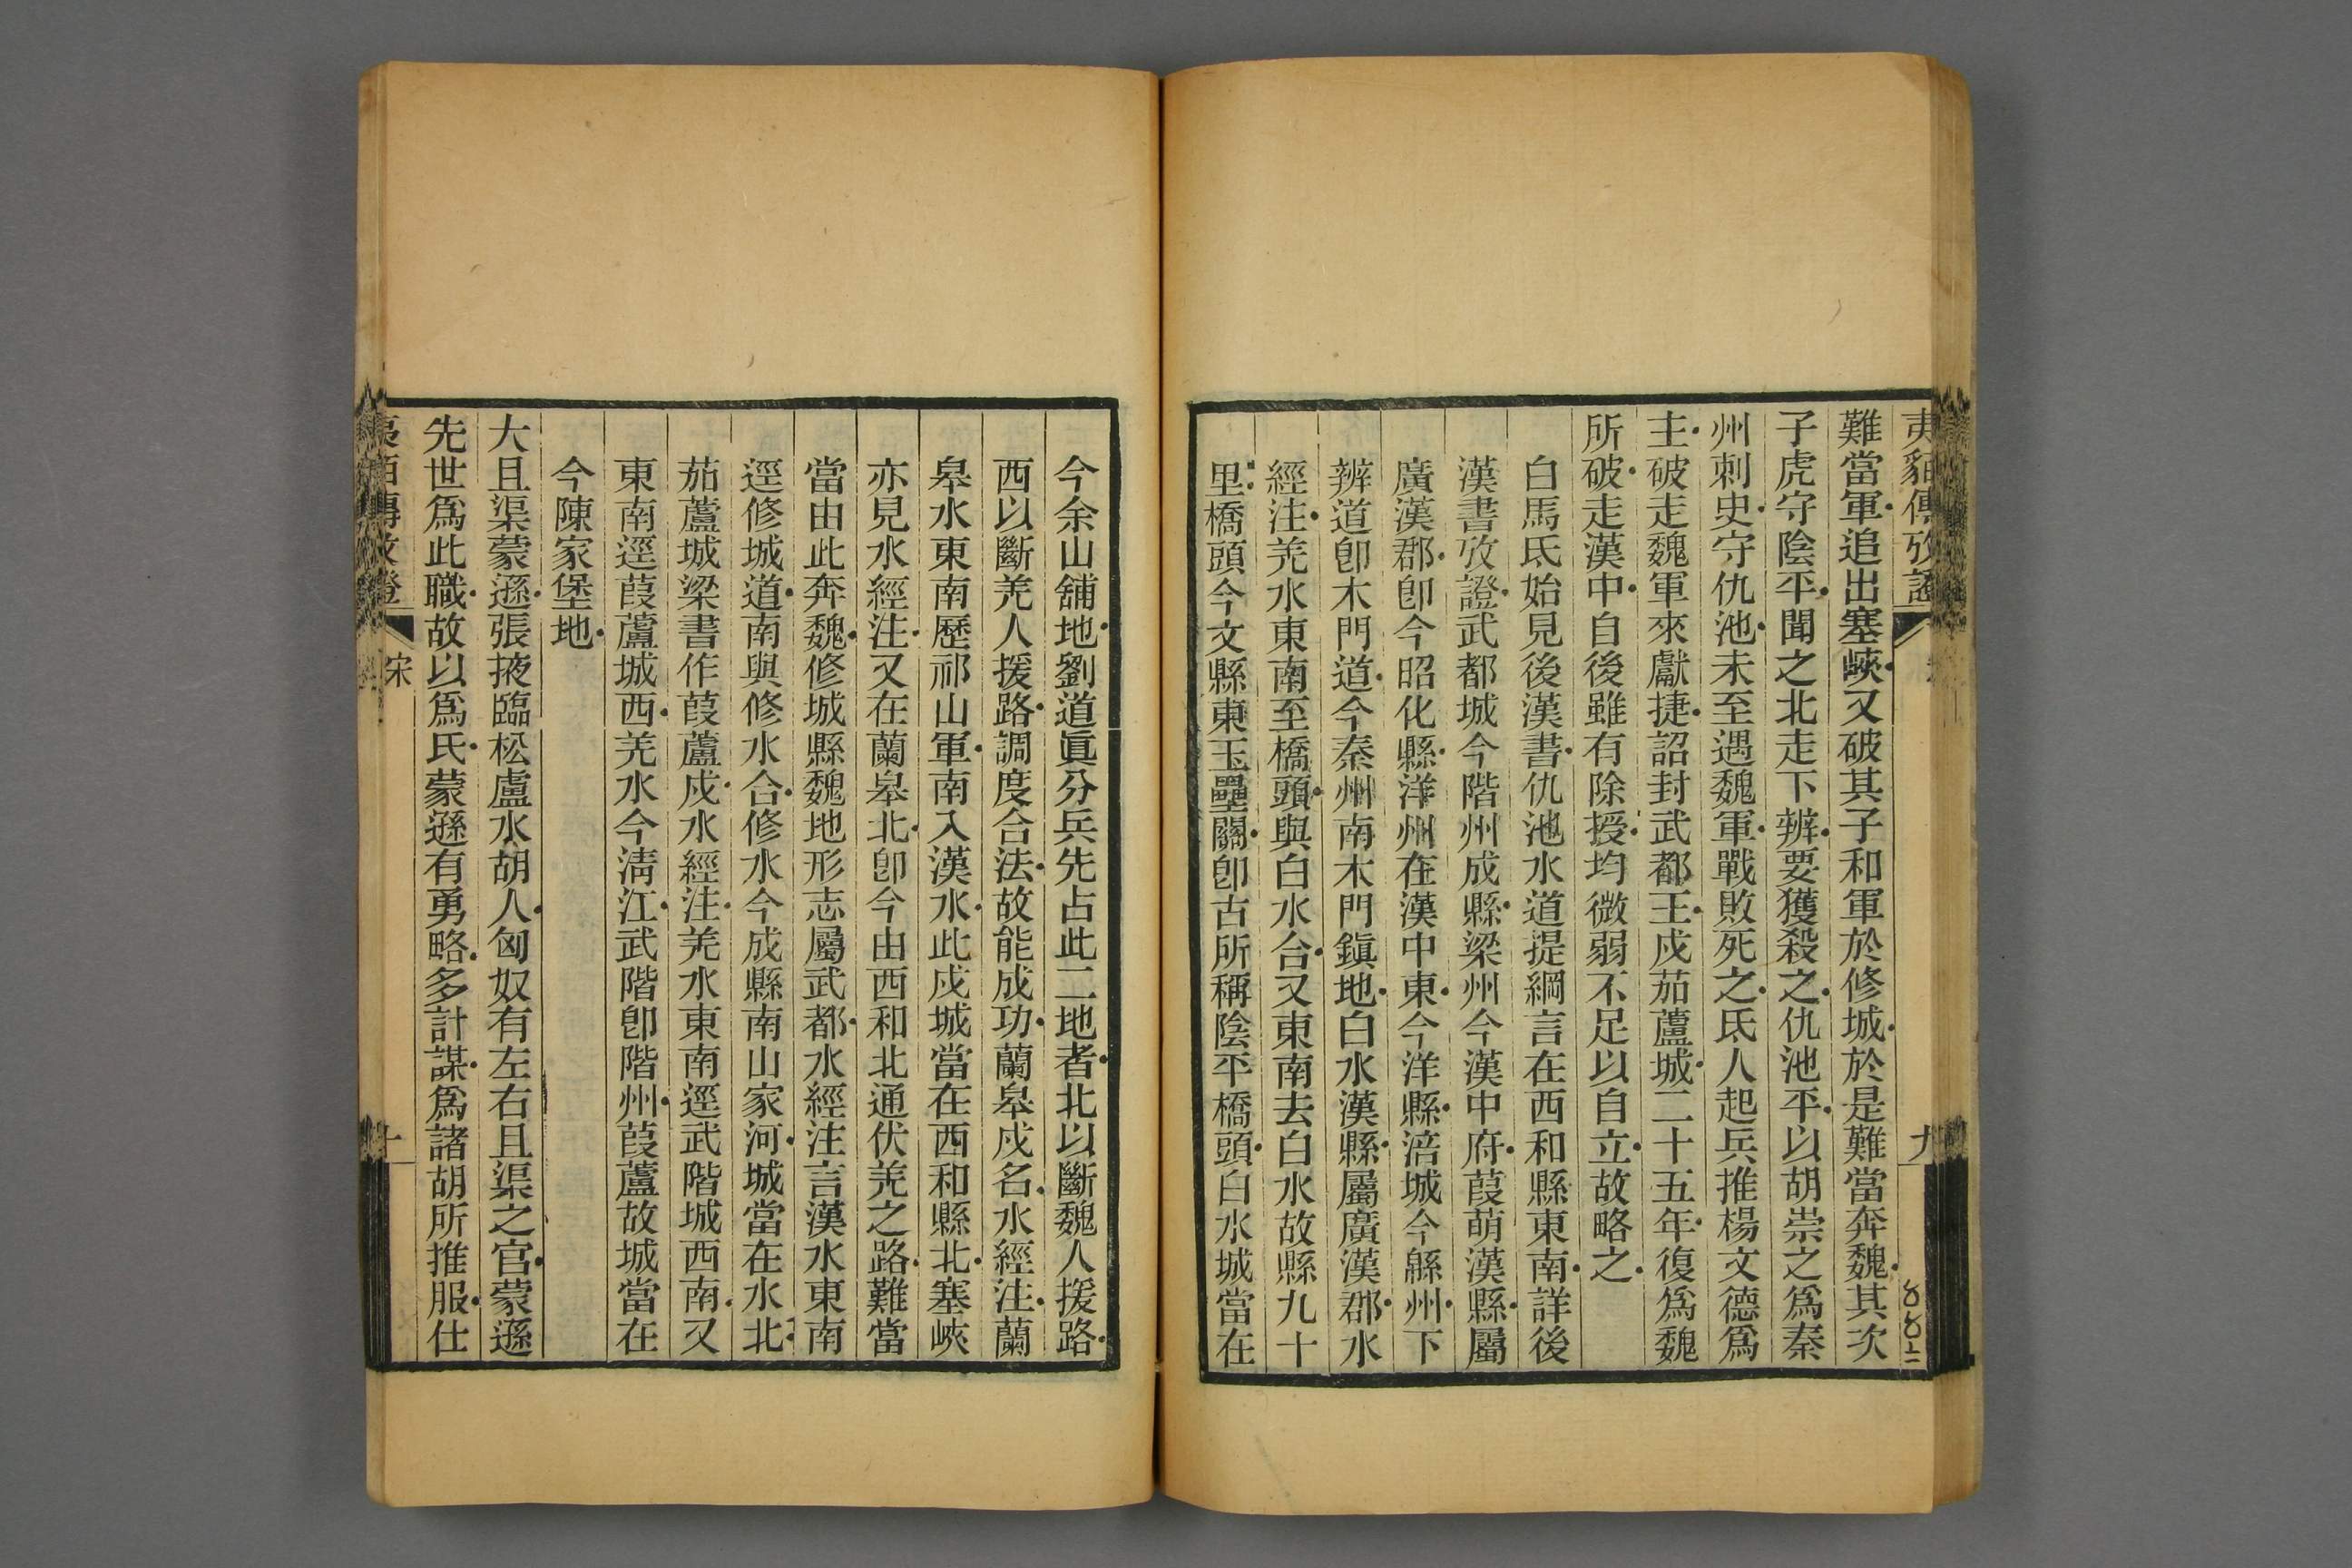 夷貊傳攷證
九
難當軍追出塞峽又破其子和軍於修城於是難當奔魏其次
子虎守陰平聞之北走下辨要獲殺之仇池平以胡崇之爲秦
州刺史守仇池未至遇魏軍戰敗死之氐人起兵推楊文德爲
主破走魏軍來獻捷詔封武都王戍茄蘆城二十五年復爲魏
所破走漢中自後雖有除授均微弱不足以自立故略之
白馬氐始見後漢書仇池水道提綱言在西和縣東南詳後
漢書攷證武都城今階州成縣梁州今漢中府葭萌漢縣屬
廣漢郡卽今昭化縣洋州在漢中東今洋縣涪城今緜州下
辨道卽木門道今秦州南木門鎭地白水漢縣屬廣漢郡水
經注羌水東南至橋頭與白水合又東南去白水故縣九十
里橋頭今文縣東玉壘關卽古所稱陰平橋頭白水城當在
今余山舖地劉道眞分兵先占此二地者北以斷魏人援路
西以斷羌人援路調度合法故能成功蘭皋戍名水經注蘭
皋水東南歷祁山軍南入漢水此戍城當在西和縣北塞峽
亦見水經注又在蘭皋北卽今由西和北通伏羌之路難當
當由此奔魏修城縣魏地形志屬武都水經注言漢水東南
逕修城道南與修水合修水今成縣南山家河城當在水北
茄蘆城梁書作葭蘆戍水經注羌水東南逕武階城西南又
東南逕葭蘆城西羌水今淸江武階卽階州葭蘆故城當在
今陳家堡地
大且渠蒙遜張掖臨松盧水胡人匈奴有左右且渠之官蒙遜
先世爲此職故以爲氏蒙遜有勇略多計謀爲諸胡所推服仕
夷貊傳攷證
宋
十